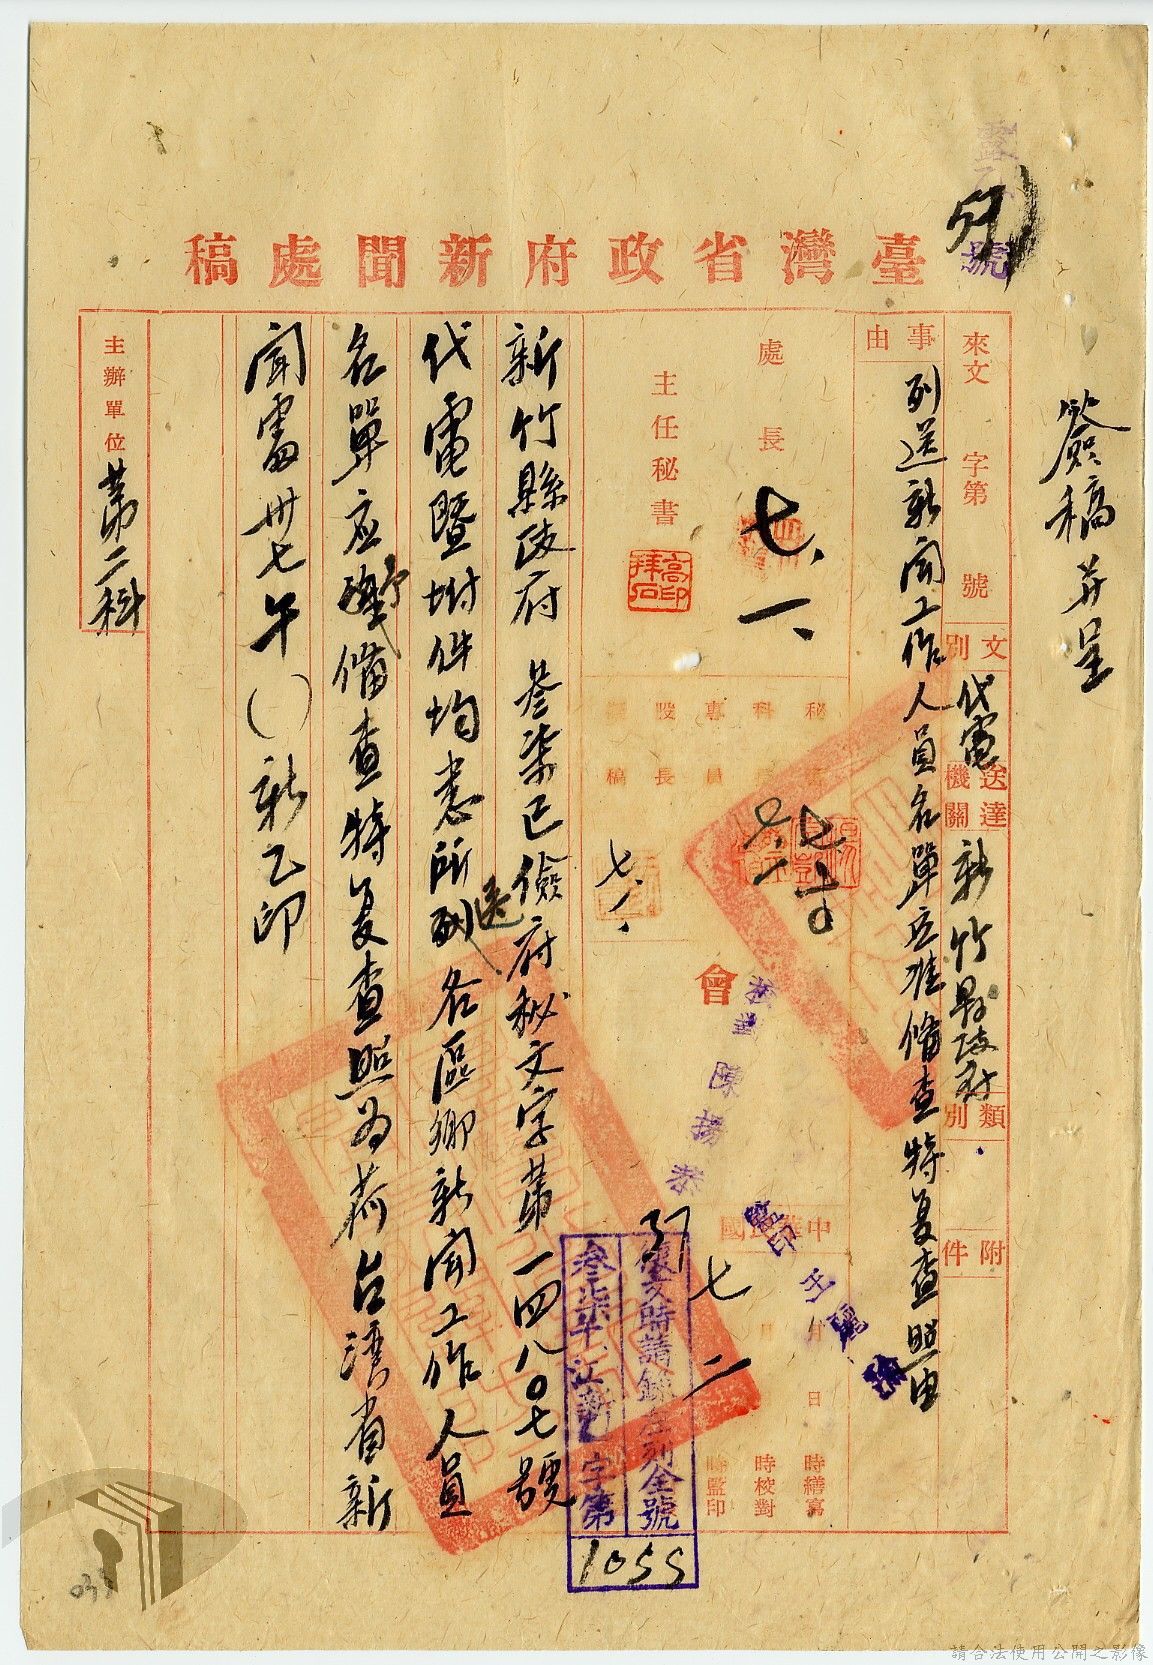 簽稿并呈
號
臺灣省政府新聞處稿
來文 字第 號
文別 代電
送達機關 新竹縣政府
類別
附件
事由
列送新聞工作人員名單應准備查特复查照由
處長
七、一
主任秘書
高印拜石
秘書
科長
專員
股長
擬稿
七、一、
會
校對 陳揚恭
監印 王
中華民國 37 七 二
月 日 時繕寫
時校對
時監印
復文時請錄左列全號
叁柒午江新乙字第
1055
新竹縣政府 叁柒巳儉府秘文字第一四八0七號
代電暨坿件均悉所送各區鄉新聞工作人員
名單应予備查特复查照为荷台湾省新
聞處卅七午( )新乙印
主辦單位 第二科
033
請合法使用公開之影像